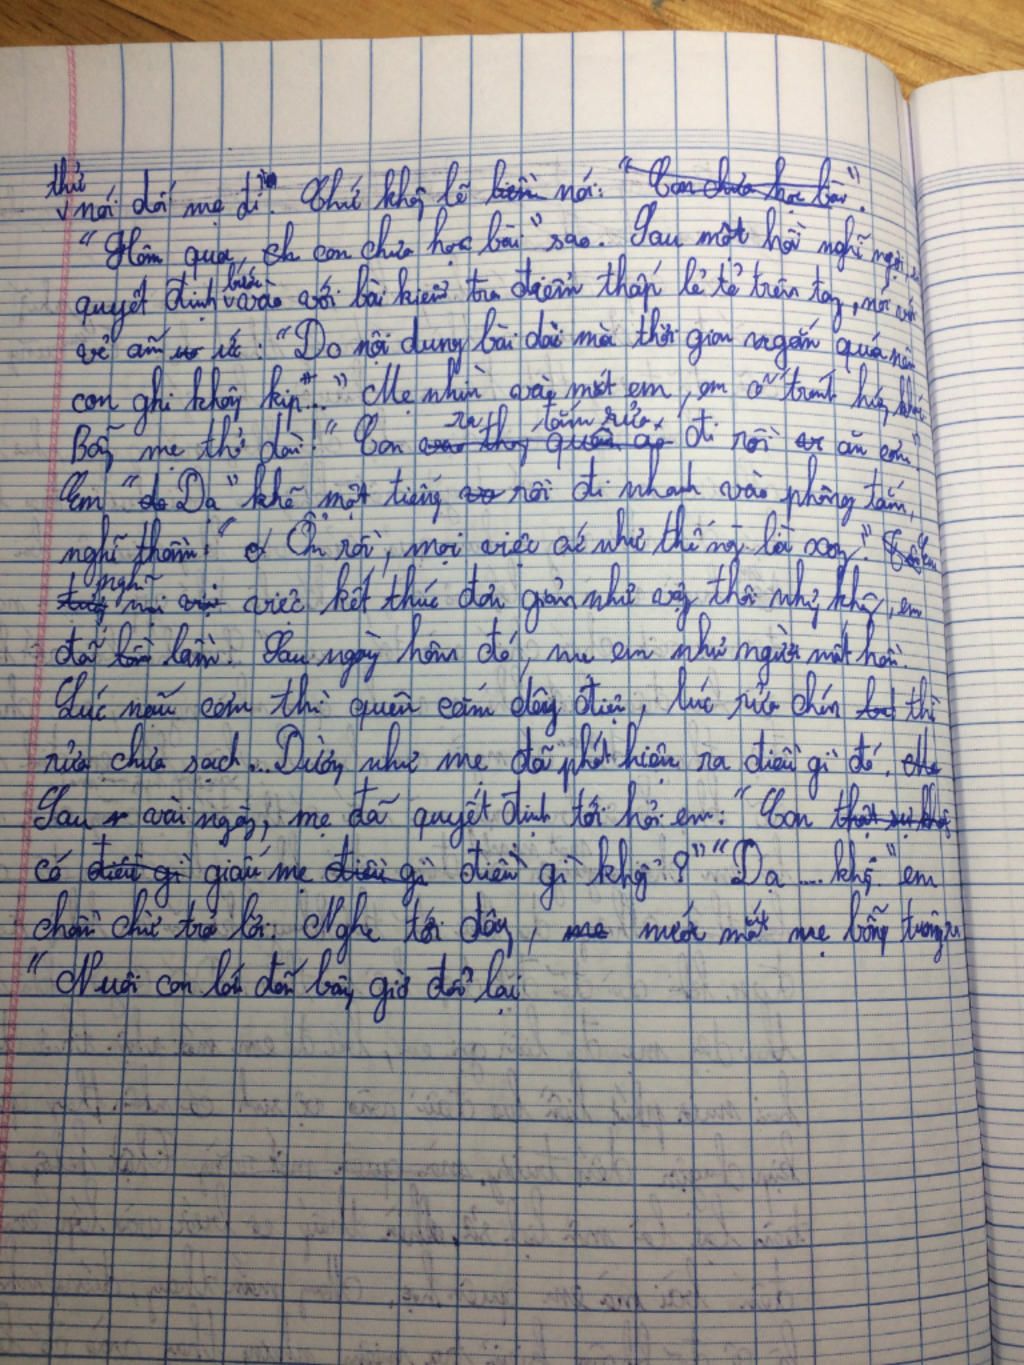 thử
nói dối mẹ đi". Chứ không lẽ nói: "Con chưa học bài".
"Hôm qua, con chưa học bài" sao. Sau một hồi nghĩ
quyết định bước vào với bài kiểm tra điểm thấp lẻ tẻ trên tay, nói với
vẻ ấm ức: "Do nội dung bài dài mà thời gian ngắn quá nên
con ghi không kịp..." Mẹ nhìn vào mắt em, em cố tránh
ra tắm rửa
Bỗng mẹ thở dài: "Con vào thay quần áo đi rồi ăn cơm"
Em "Dạ" khẽ một tiếng rồi đi nhanh vào phòng tắm,
nghĩ thầm: "Ổn rồi, mọi việc cứ như thế này là xong." Em
nghĩ
mọi việc kết thúc đơn giản như vậy thôi nhưng không, em
đã lầm. Sau ngày hôm đó, mẹ em như người mất hồn.
Lúc nấu cơm thì quên cắm dây điện, lúc rửa chén thì
rửa chưa sạch... Dường như mẹ đã phát hiện ra điều gì đó. Mẹ
Sau vài ngày, mẹ đã quyết định tới hỏi em: "Con thật sự không
có điều gì giấu mẹ điều gì điều gì không?" "Dạ .... không." em
chần chừ trả lời. Nghe tới đây, mẹ nước mắt mẹ bỗng tuông ra
"Nuôi con lớn đến bây giờ đổi lại